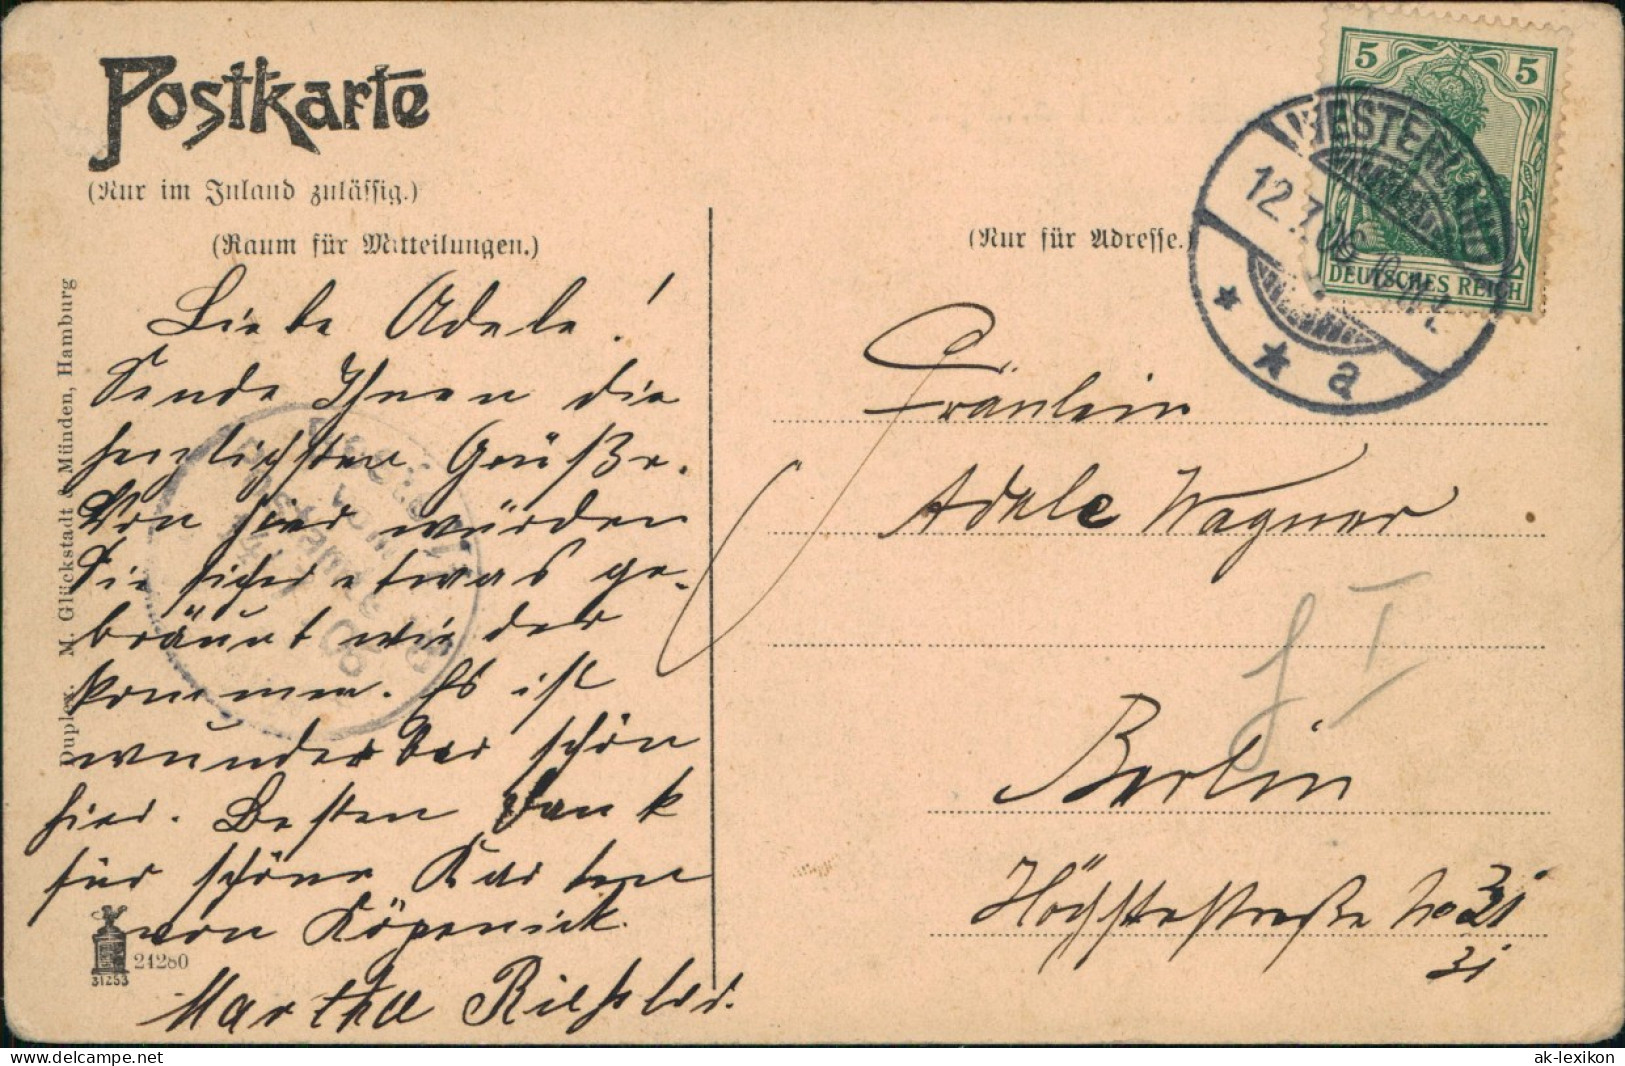 Postkarte
(Nur im Inland zulässig.)
(Raum für Mitteilungen.)
(Nur für Adresse.)
5 5
DEUTSCHES REICH
WESTERLAND
12.7.06
* * a
Liebe Adele!
Sende Ihnen die
herzlichsten Grüße.
Von hier würden
Sie sicher etwas ge-
bräunt wieder
kommen. Es ist
wunderbar schön
hier. Besten Dank
für schöne Karten
von Köpenick.
Martha
Fräulein
Adele Wagner
Berlin
Höchstestraße No 31
31
Duplex. M. Glückstadt & Münden, Hamburg
21280
31253
ak-lexikon